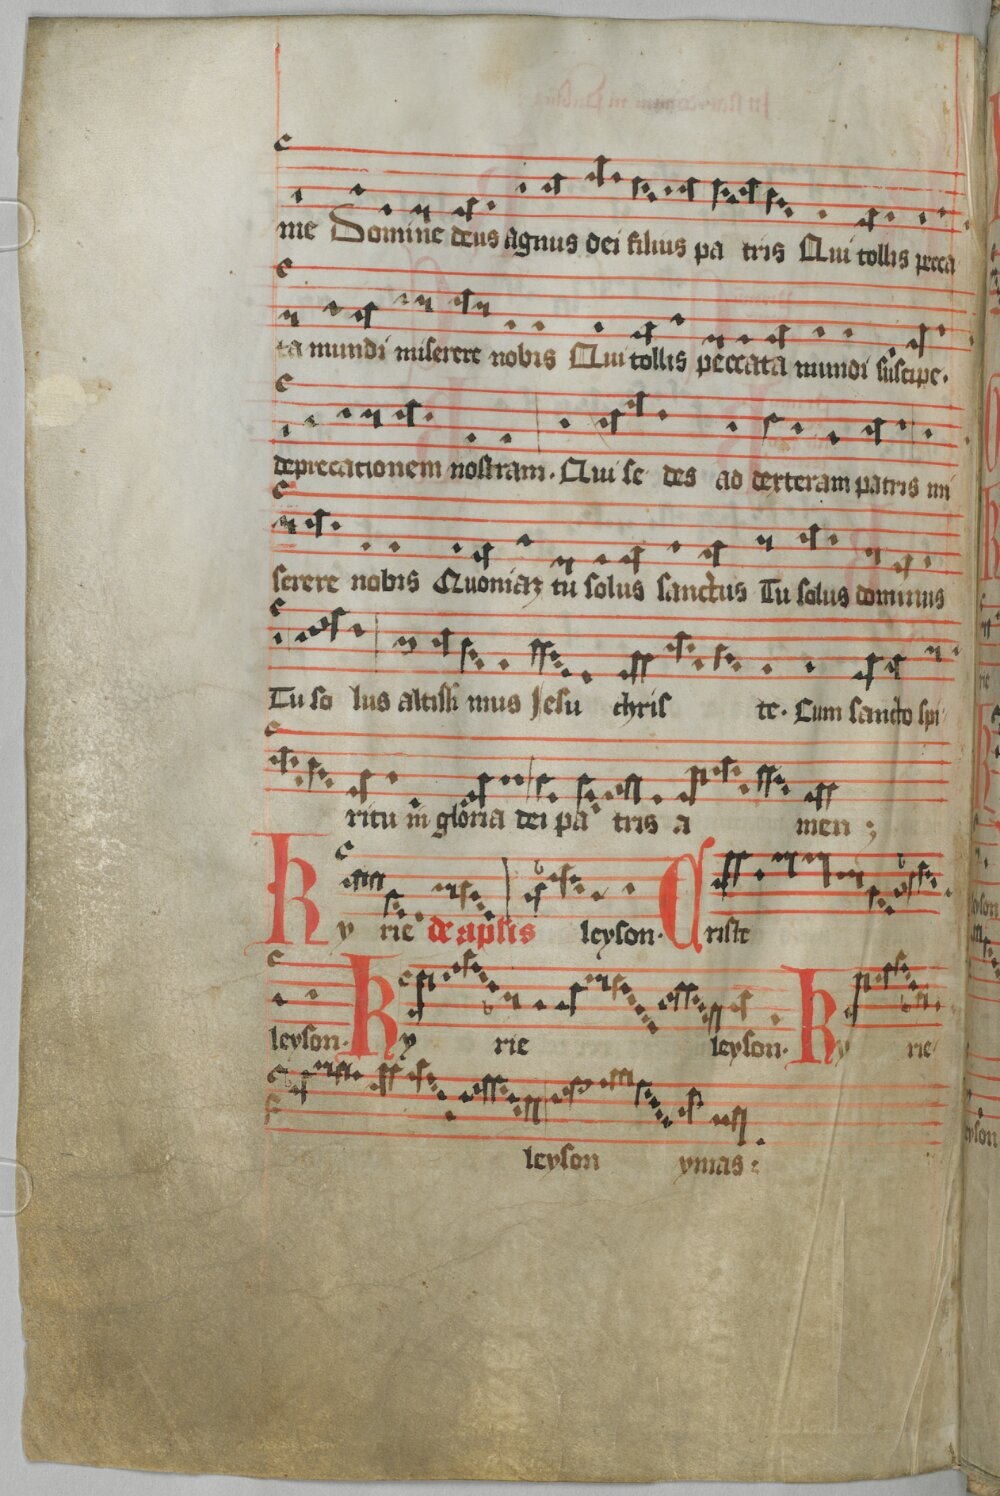 me Domine deus agnus dei filius pa tris Qui tollis pecca
ta mundi miserere nobis Qui tollis peccata mundi suscipe.
deprecationem nostram. Qui se des ad dexteram patris mi
serere nobis Quoniaz tu solus sanctus Tu solus dominus
Tu so lus altissi mus Jesu chris te. Cum sancto spi
ritu in gloria dei pa tris a men ;
Ky rie de aplis leyson. Criste
leyson. Ky rie leyson. Ky rie
leyson ymas :